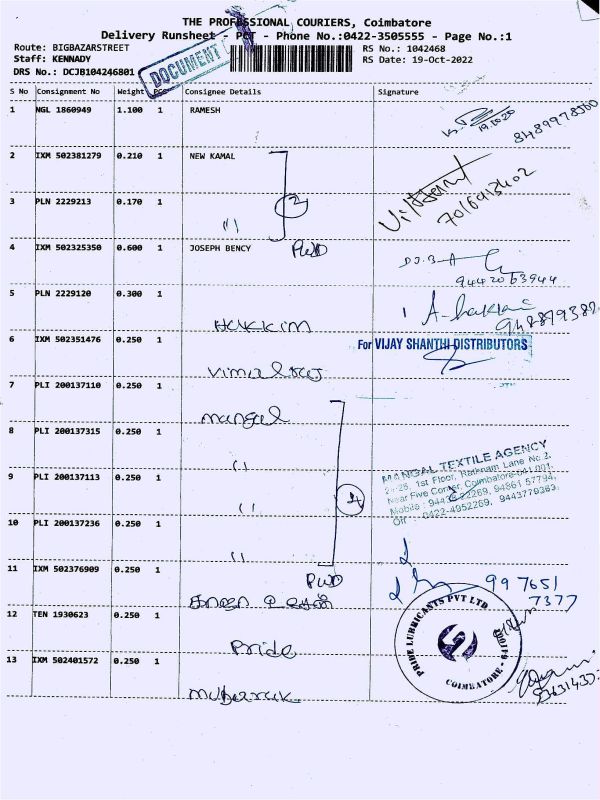 THE PROFESSIONAL COURIERS, Coimbatore
Delivery Runsheet - PCT - Phone No.:0422-3505555 - Page No.:1
Route: BIGBAZARSTREET RS No.: 1042468
Staff: KENNADY RS Date: 19-Oct-2022
DRS No.: DCJB104246801
DOCUMENT
S No Consignment No Weight PCS Consignee Details Signature
1 NGL 1860949 1.100 1 RAMESH
19.10.20
8489978500
2 IXM 502381279 0.210 1 NEW KAMAL
2
3 PLN 2229213 0.170 1
7016913402
"
4 IXM 502325350 0.600 1 JOSEPH BENCY PWD
9442063944
5 PLN 2229120 0.300 1
Hakkim
6 IXM 502351476 0.250 1
For VIJAY SHANTHI DISTRIBUTORS
Vimal Raj
7 PLI 200137110 0.250 1
Mangal
8 PLI 200137315 0.250 1
"
MANGAL TEXTILE AGENCY
1st Floor, Rathnam Lane No.2,
Near Five Corner, Coimbatore-641 001.
Mobile : 94432269, 94861 57794,
Off : 0422-4952269, 9443779363.
9 PLI 200137113 0.250 1
"
4
10 PLI 200137236 0.250 1
"
11 IXM 502376909 0.250 1 PWD
997651
7377
12 TEN 1930623 0.250 1
Pride
PRIDE LUBRICANTS PVT LTD
COIMBATORE - 641 001
13 IXM 502401572 0.250 1
Mubarruk